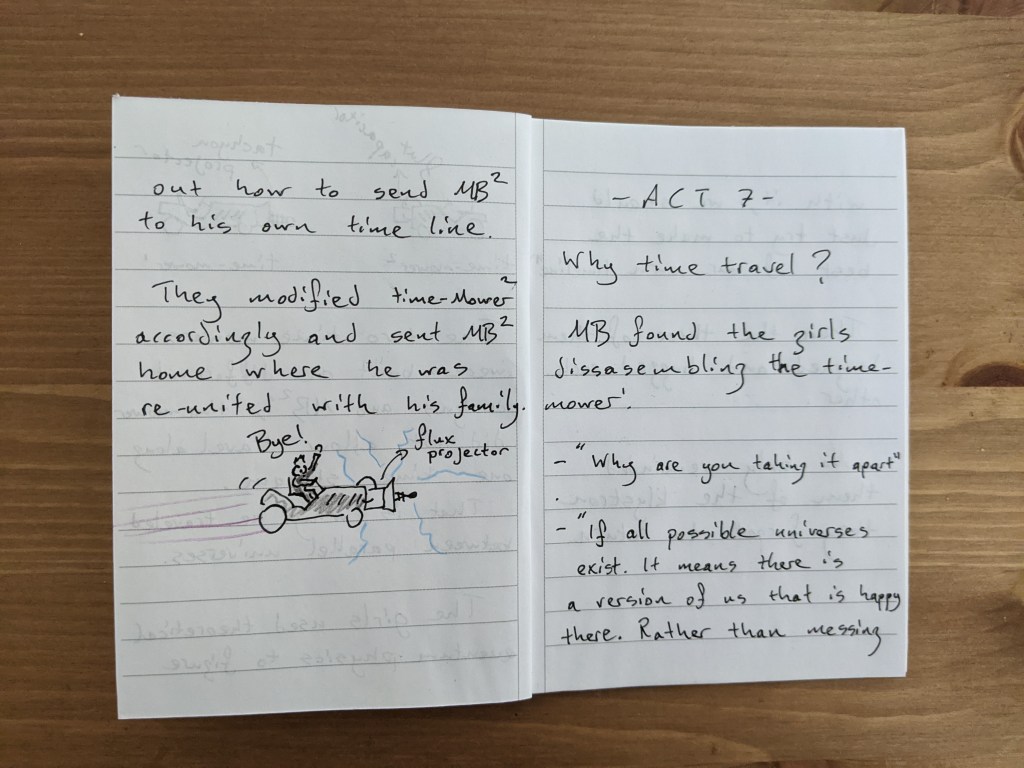 out how to send MB²
to his own time line.
They modified time-Mower²
accordingly and sent MB²
home where he was
re-united with his family.
Bye!
flux
projector
- ACT 7 -
Why time travel?
MB found the girls
dissasembling the time-
mower'.
- "Why are you taking it apart"
.
- "If all possible universes
exist. It means there is
a version of us that is happy
there. Rather than messing